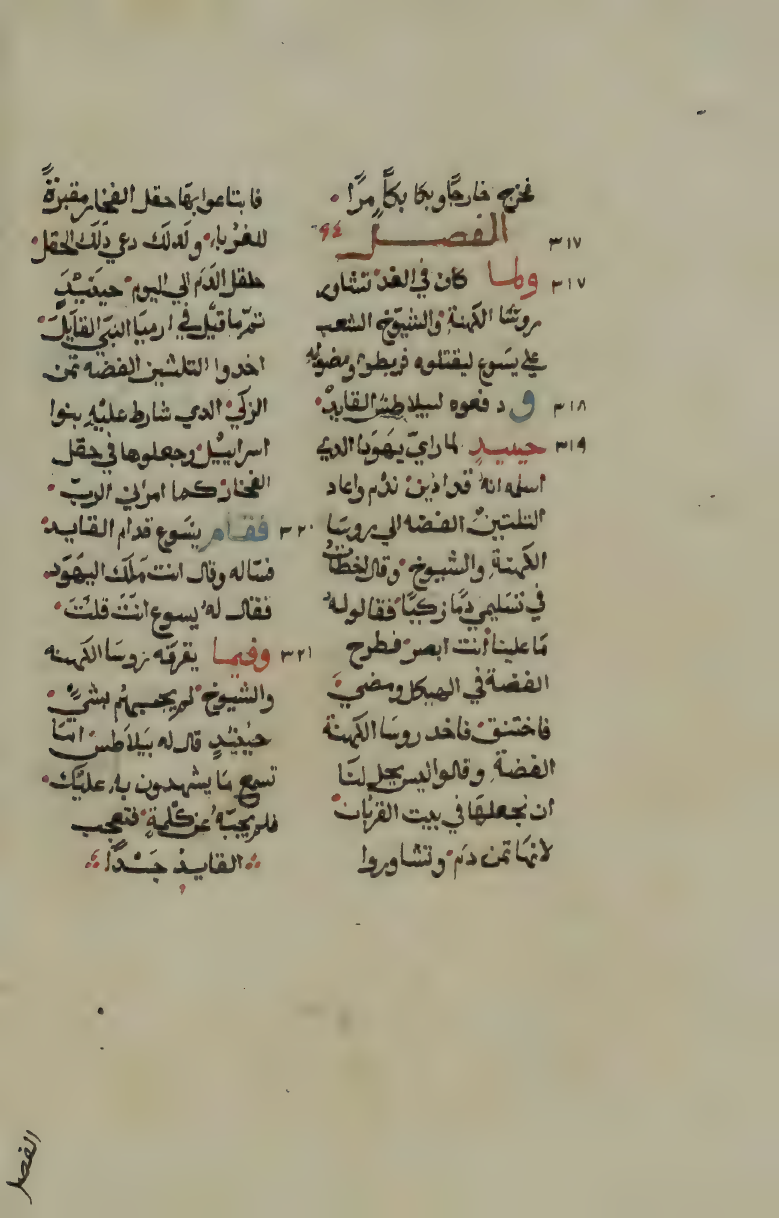 فخرج خارجًا وبكا بكاًّ مرًا
الفصل ٩٤
٣١٧
٣١٧ ولما كان في الغد تشاور
روسا الكهنة والشيوخ الشعب
علي يسوع ليقتلوه فربطوه ومضوا به
٣١٨ ودفعوه لبيلاطس القايد
٣١٩ حينيدٍ لما راي يهودا الدي
اسلمه انه قد ادين ندم واعاد
التلتين الفضه الي روسا
الكهنة والشيوخ وقال اخطات
في تسليمي دمًا زكيًا فقالو له
ما علينا أنت ابصر فطرح
الفضة في الهيكل ومضي
فاختنق فاخد روسا الكهنة
الفضة وقالوا ليس يحل لنا
ان نجعلها في بيت القربان
لانها تمن دم وتشاوروا
فابتاعوا بها حقل الفخار مقبرةً
للغربا ولدلك دعي دلك الحقل
حقل الدم الي اليوم حينيدٍ
تم ما قيل في ارميا النبي القايل
اخدوا التلتين الفضه تمن
الزكي الدي شارط عليه بنوا
اسراييل وجعلوها في حقل
الفخار كما امرني الرب
٣٢٠ فقام يسوع قدام القايد
فساله وقال انت ملك اليهود
فقال له يسوع انت قلت
٣٢١ وفيما يقرفه روسا الكهنه
والشيوخ لم يجيبهم بشي
حينيدٍ قال له بيلاطس اما
تسمع ما يشهدون به عليك
فلم يجبه عن كلمةٍ فتعجب
القايد جدًا
الفصل